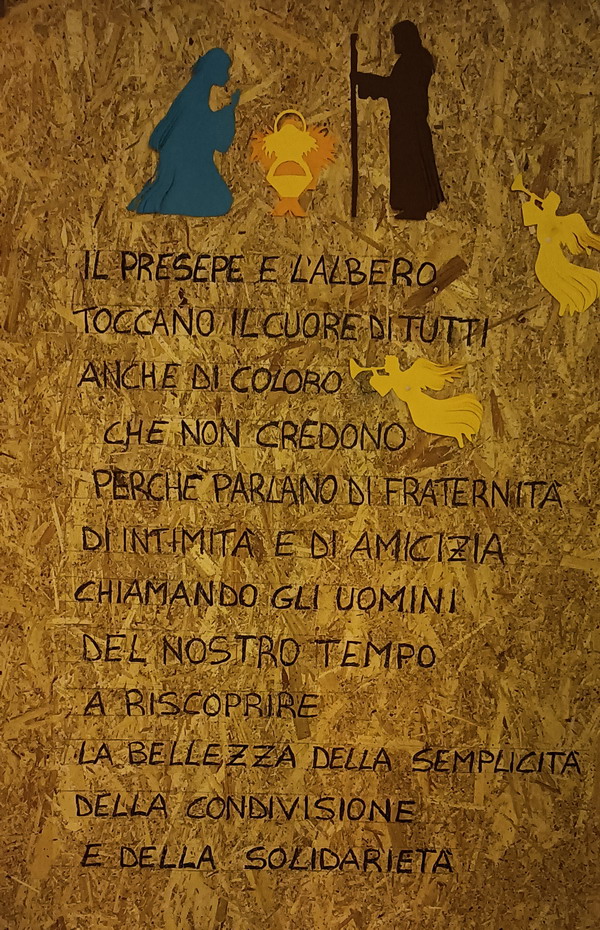 IL PRESEPE E L'ALBERO
TOCCANO IL CUORE DI TUTTI
ANCHE DI COLORO
CHE NON CREDONO
PERCHE' PARLANO DI FRATERNITÀ
DI INTIMITÀ E DI AMICIZIA
CHIAMANDO GLI UOMINI
DEL NOSTRO TEMPO
A RISCOPRIRE
LA BELLEZZA DELLA SEMPLICITÀ
DELLA CONDIVISIONE
E DELLA SOLIDARIETÀ